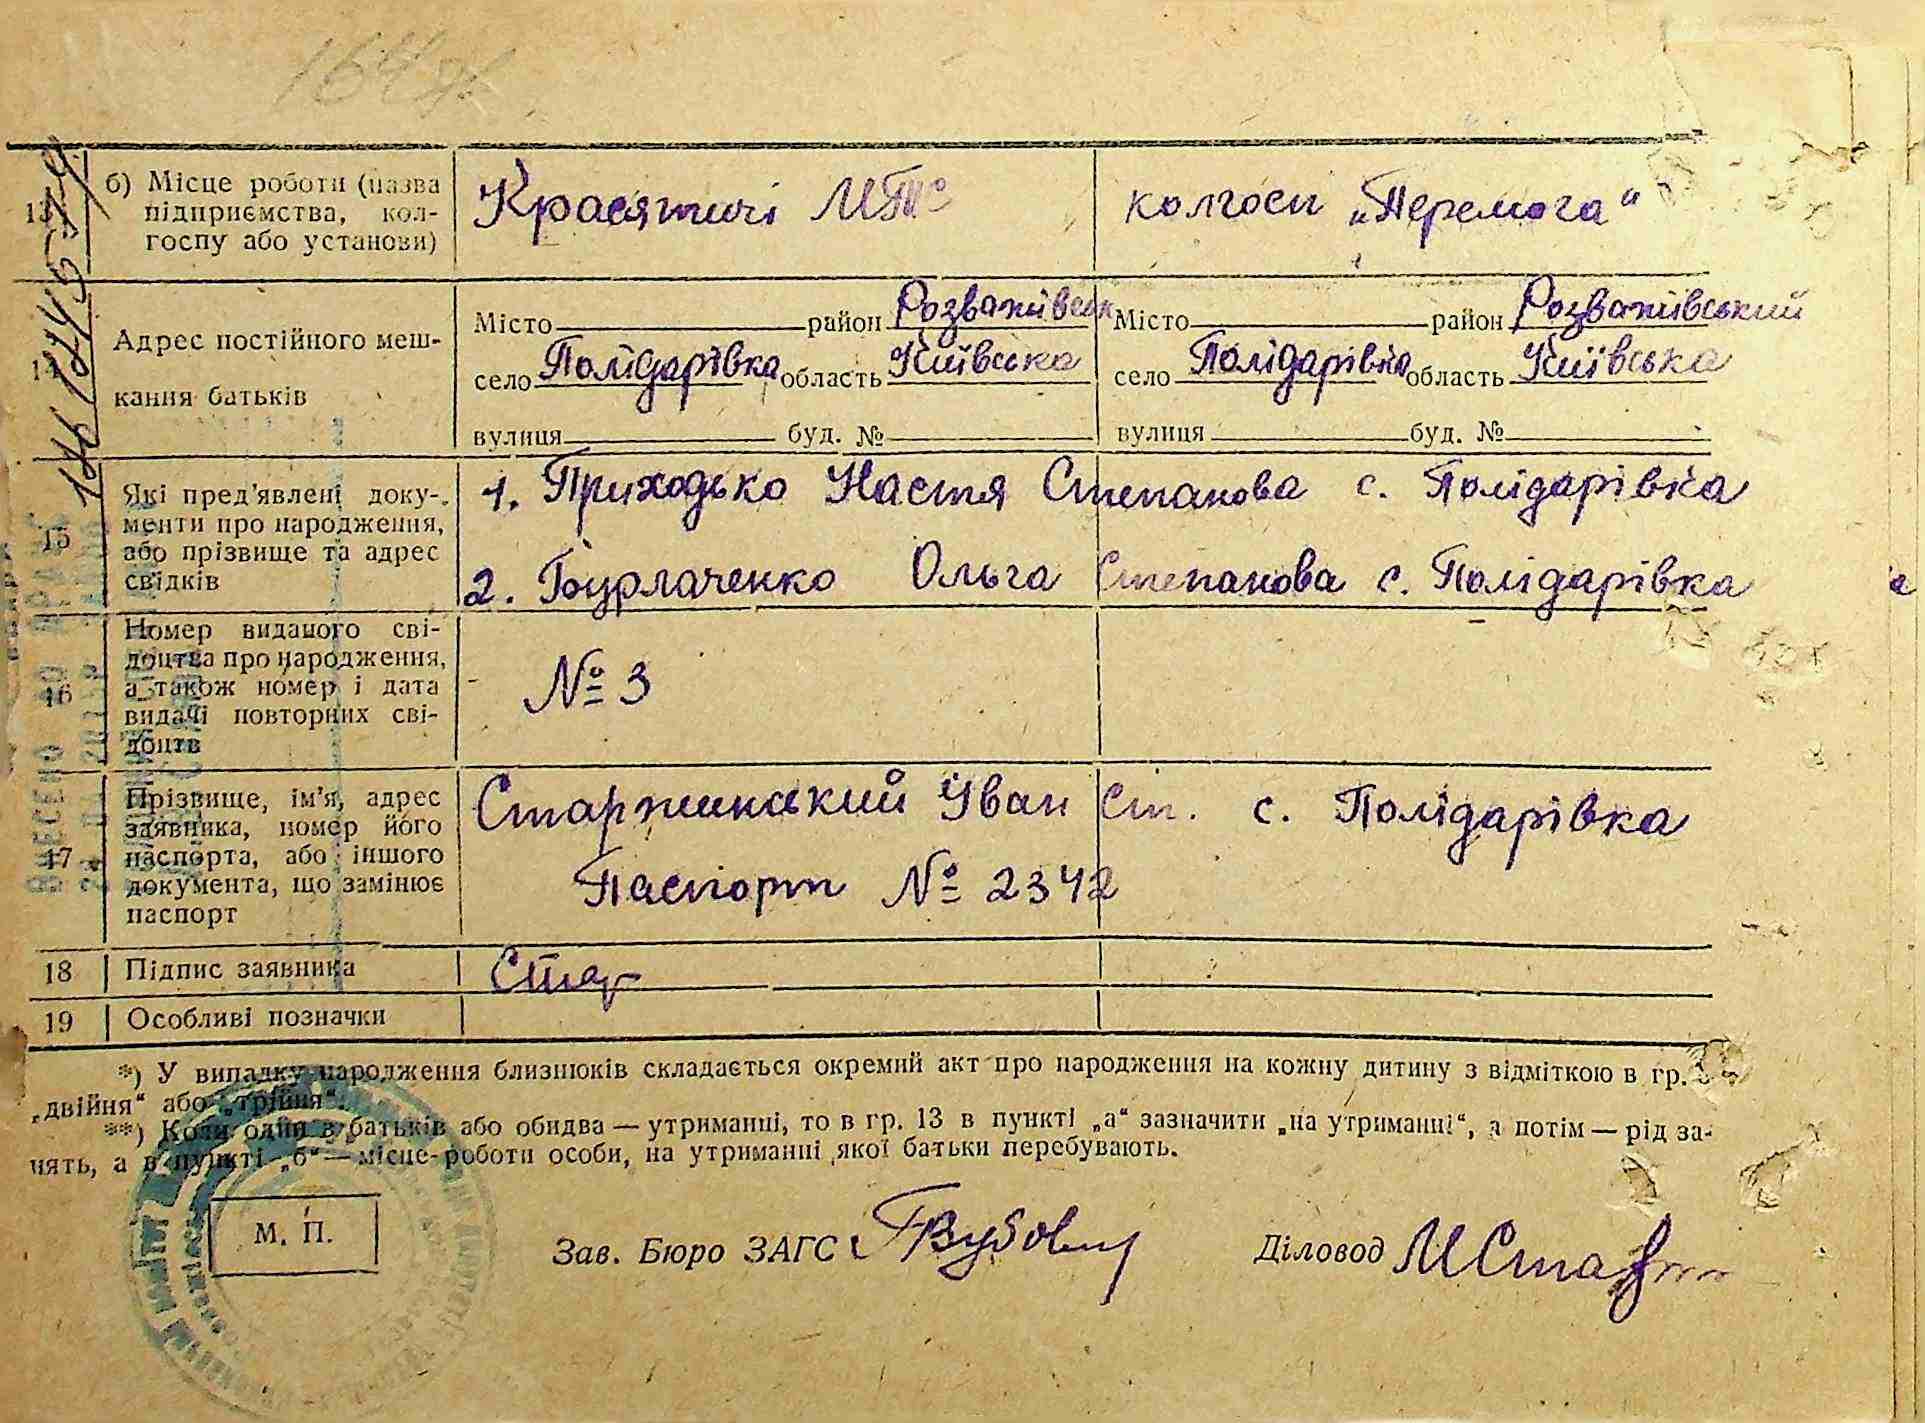 164
13
б) Місце роботи (назва підприємства, колгоспу або установи)
Красятичі МТС
колгосп „Перемога“
14
Адрес постійного мешкання батьків
Місто район Розважівськ
село Полідарівка область Київська
вулиця буд. №
Місто район Розважівський
село Полідарівка область Київська
вулиця буд. №
15
Які пред'явлені документи про народження, або прізвище та адрес свідків
1. Приходько Настя Степанова с. Полідарівка
2. Бурлаченко Ольга Степанова с. Полідарівка
16
Номер виданого свідоцтва про народження, а також номер і дата видачі повторних свідоцтв
№ 3
17
Прізвище, ім'я, адрес заявника, номер його паспорта, або іншого документа, що замінює паспорт
Старжинський Іван Ст. с. Полідарівка
Паспорт № 2342
18
Підпис заявника
Стар
19
Особливі позначки
*) У випадку народження близнюків складається окремий акт про народження на кожну дитину з відміткою в гр.
„двійня“ або „трійня“.
**) Коли один з батьків або обидва — утриманці, то в гр. 13 в пункті „а“ зазначити „на утриманні“, а потім — рід за-
нять, а в пункті „б“ — місце роботи особи, на утриманні якої батьки перебувають.
М. П.
Зав. Бюро ЗАГС
Діловод